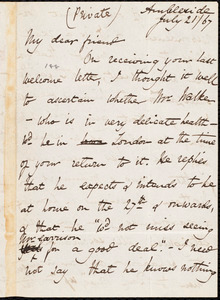 (Private)
Ambleside
July 21/67
My dear friend
On receiving your last
welcome letter, I thought it well
to ascertain whether Mr Walker
- who is in very delicate health -
wd. be in London at the time
of your return to it. He replies
that he expects & intends to be
at home on the 27th & onwards,
& that he "wd. not miss seeing
Mr Garrison
for a good deal." - I need
not say that he knows nothing